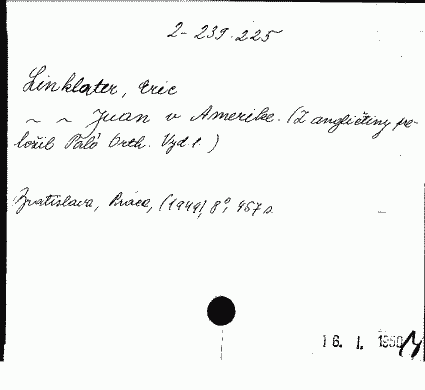 2-239.225
Linklater, Eric
~ ~ Juan v Amerike. (Z angličtiny pre-
ložil Paľo Orth. Vyd 1.)
Bratislava, Práca, (1949) 8°, 457 s.
16. I. 1950